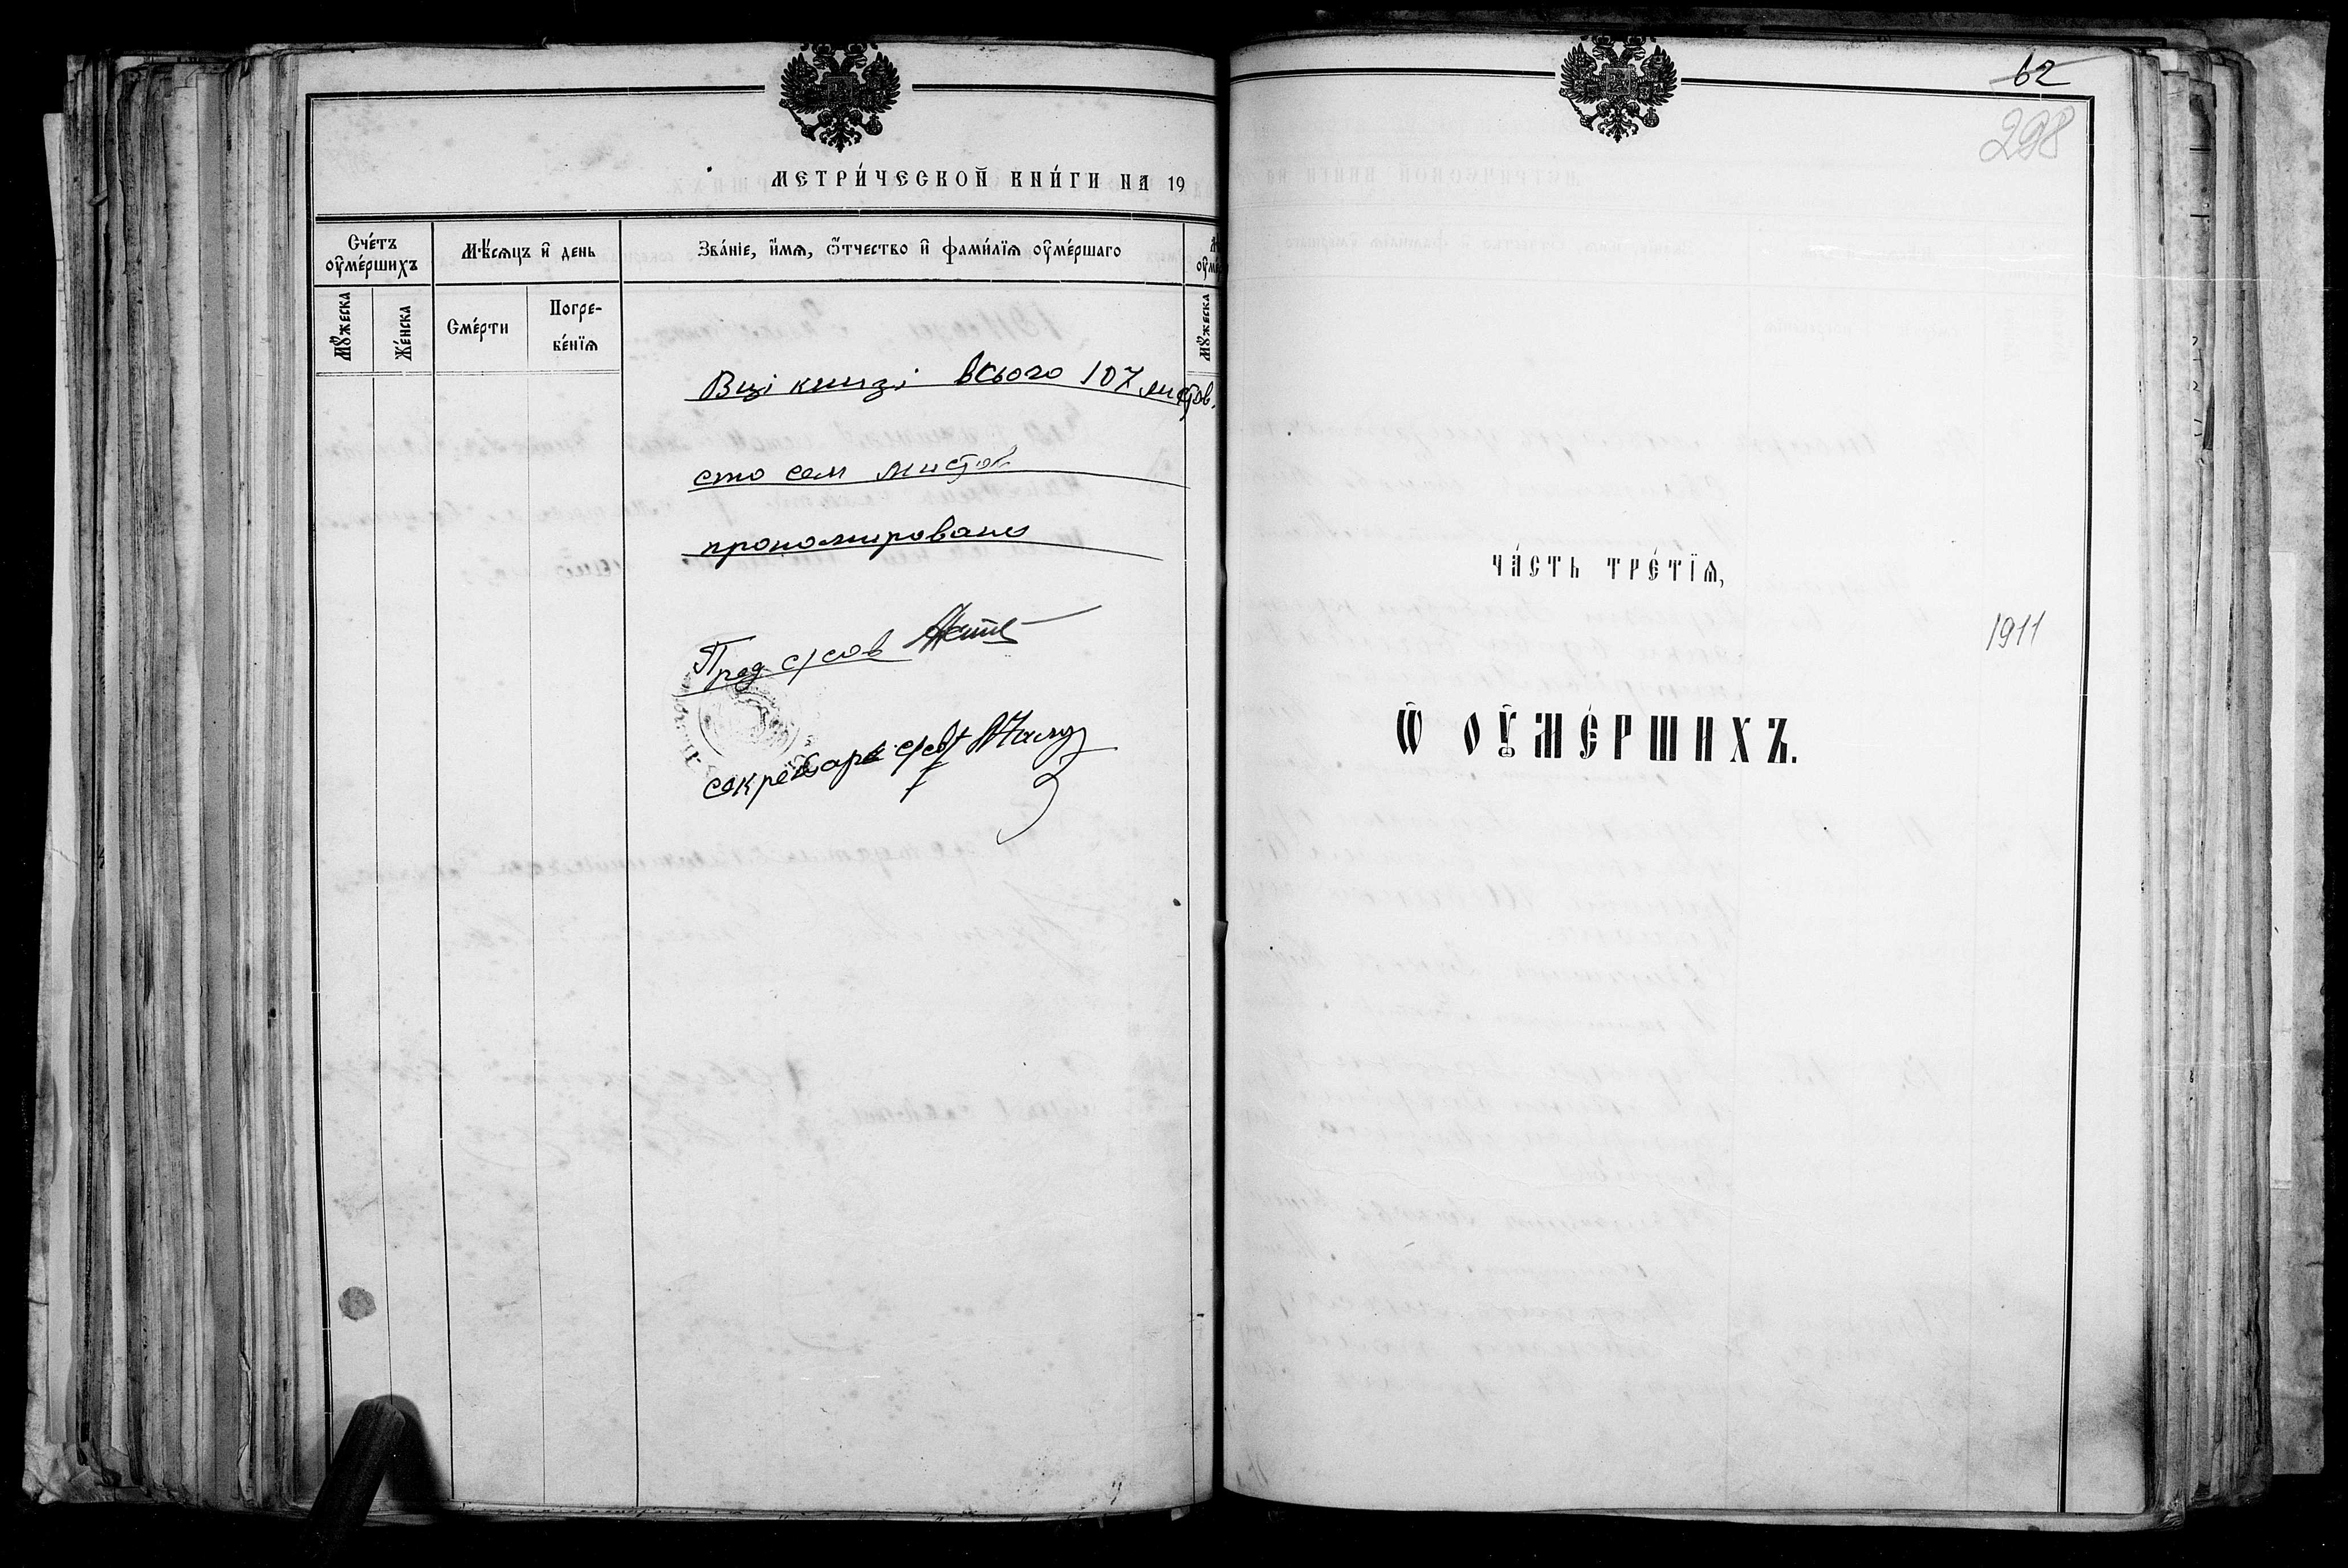 МЕТРИ́ЧЕСКОЙ КНИ́ГИ НА 19
Сче́тъ оу҆ме́ршихъ
Мѣ́сяцъ и҆ день
Зва́нїе, и҆́мя, ѻ҆́тчество и҆ фами́лїя оу҆ме́ршаго
Мꙋ́жеска
Же́нска
Сме́рти
Погре-
бе́нїя
Мꙋ́жеска
В ці книзі всього 107 листов.
сто сем листов
прономировано
Пред с/сов
секретарь с/сов
62
298
ЧА́СТЬ ТРЕ́ТЇѦ,
1911
Ѽ ОУ҆МЕ́РШИХЪ.